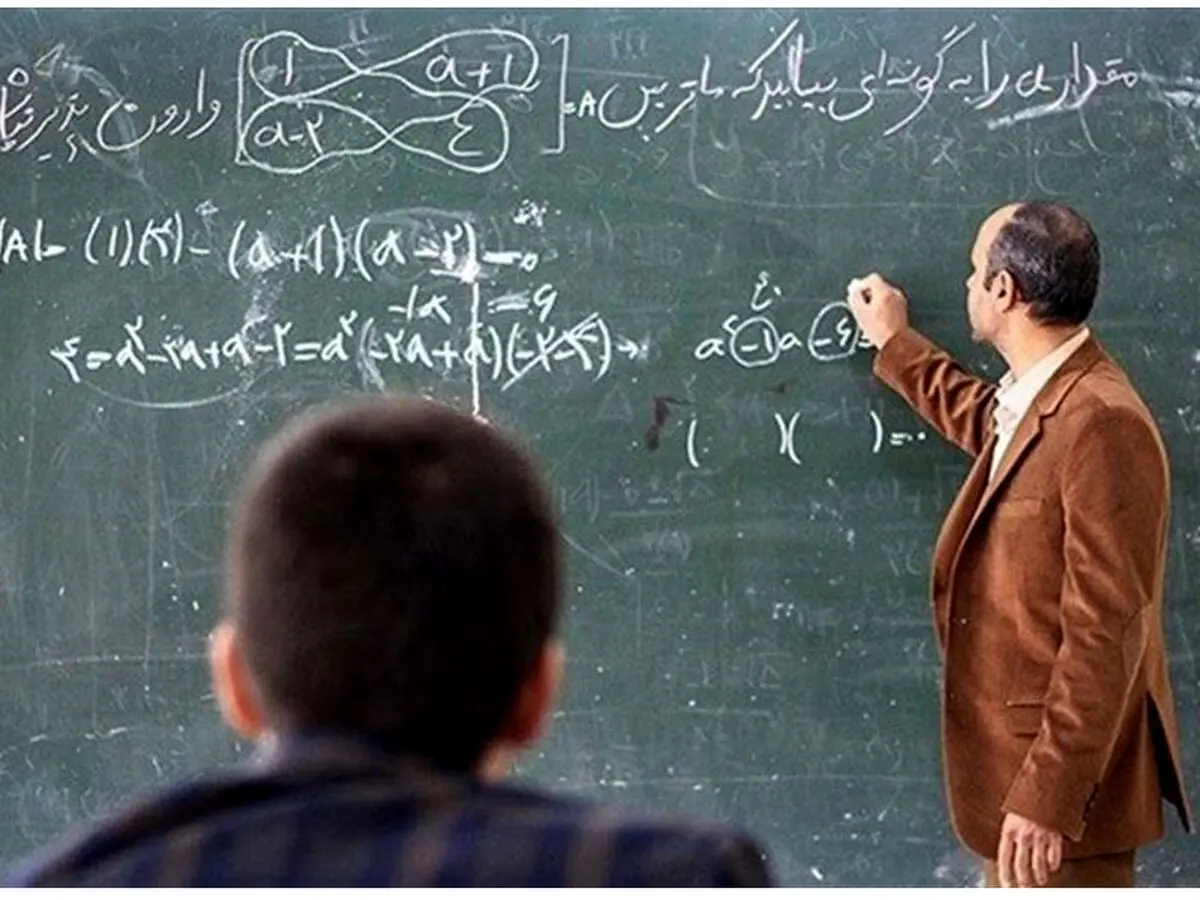 مقدار a را به گونه‌ای بیابید که ماتریس A= [۱ a+۱ a-۲ ٤] وارون پذیر نباشد
|A|= (۱)(۴) - (a+۱)(a-۲) = ۰
-۱a = ۶
۴ = a^۲ -۲a + a -۲ = a^۲ (-۲a + a)(-۲-۴) → a^۲ -۱a -۶ =
( )( ) = ۰